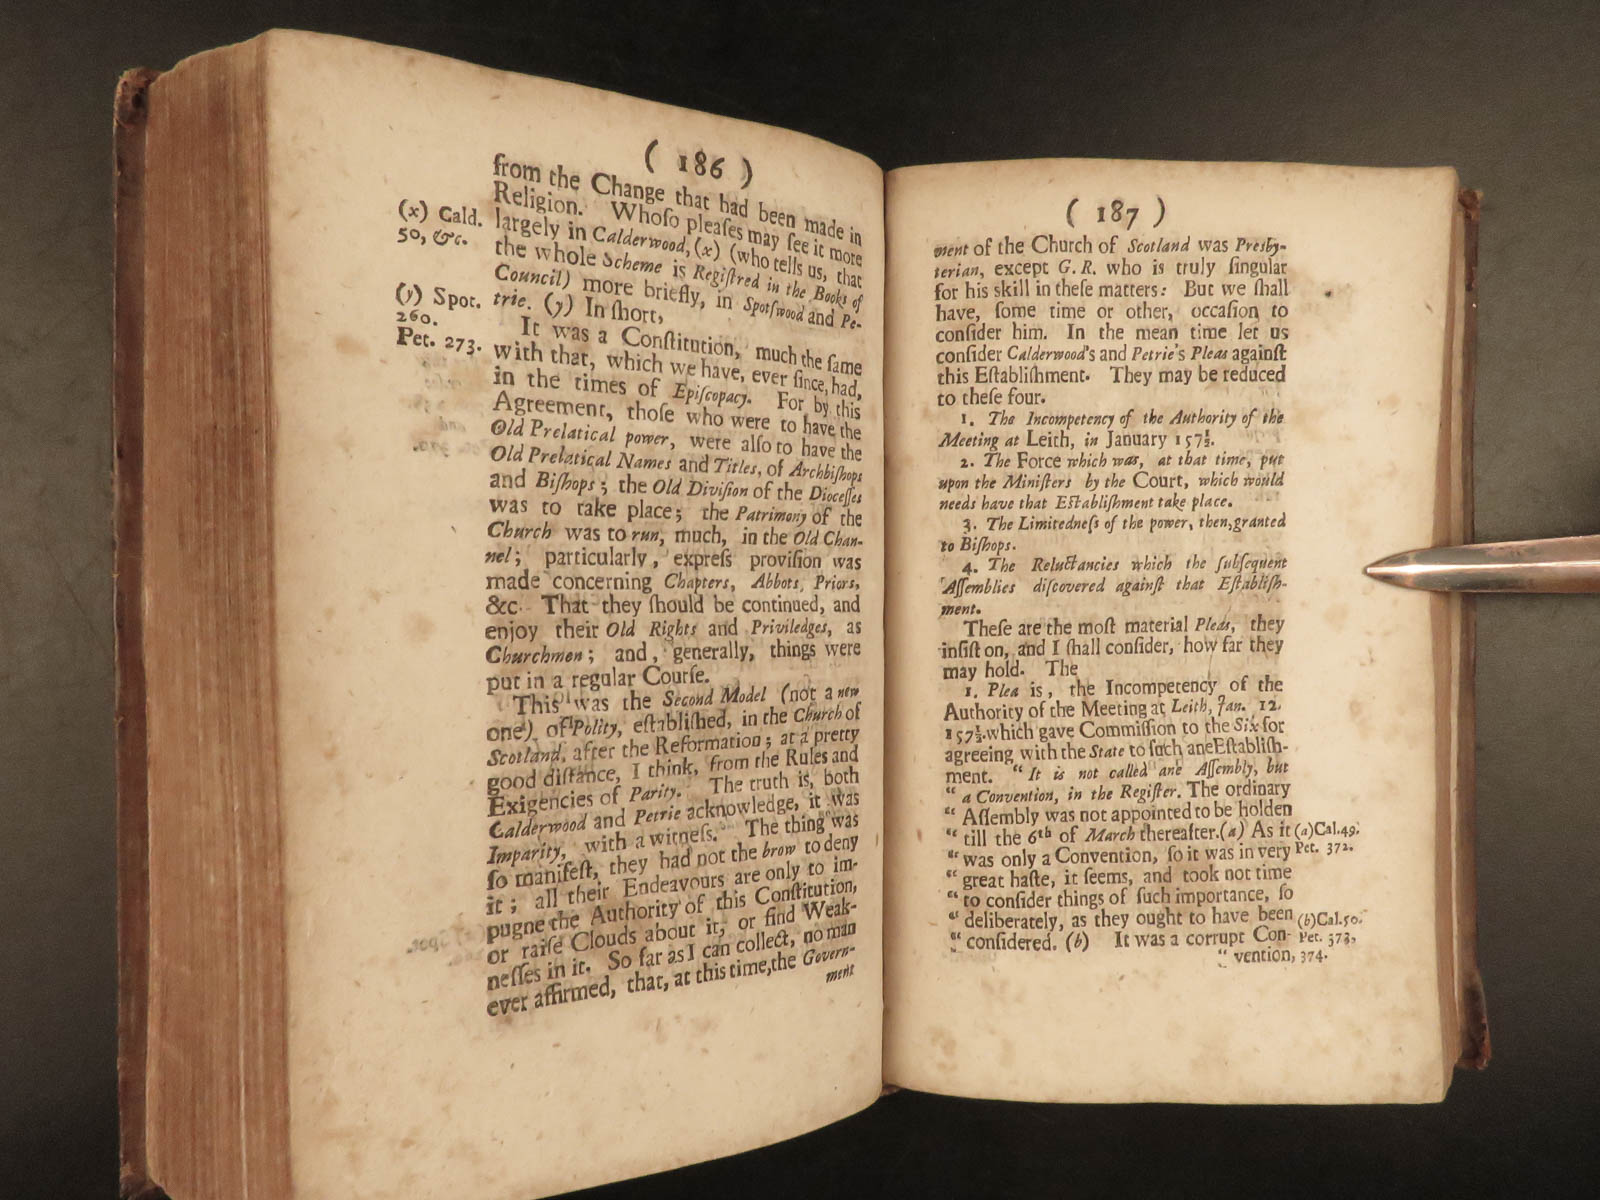 ( 186 )
from the Change that had been made in
Religion. Whoſo pleaſes may ſee it more
(x) Cald. largely in Calderwood, (x) (who tells us, that
50, &c. the whole Scheme is Regiſtred in the Books of
Council) more briefly, in Spotſwood and Pe-
(y) Spot. trie. (y) In ſhort,
260.
It was a Conſtitution, much the ſame
Pet. 273. with that, which we have, ever ſince, had,
in the times of Epiſcopacy. For by this
Agreement, thoſe who were to have the
Old Prelatical power, were alſo to have the
Old Prelatical Names and Titles, of Archbiſhops
and Biſhops; the Old Diviſion of the Dioceſſes
was to take place; the Patrimony of the
Church was to run, much, in the Old Chan-
nel; particularly, expreſs proviſion was
made concerning Chapters, Abbots, Priors,
&c. That they ſhould be continued, and
enjoy their Old Rights and Priviledges, as
Churchmen; and, generally, things were
put in a regular Courſe.
This was the Second Model (not a new
one) of Polity, eſtabliſhed, in the Church of
Scotland, after the Reformation; at a pretty
good diſtance, I think, from the Rules and
Exigencies of Parity. The truth is, both
Calderwood and Petrie acknowledge, it was
Imparity, with a witneſs. The thing was
ſo manifeſt, they had not the brow to deny
it; all their Endeavours are only to im-
pugne the Authority of this Conſtitution,
or raiſe Clouds about it, or find Weak-
neſſes in it. So far as I can collect, no man
ever affirmed, that, at this time, the Govern-
ment
( 187 )
ment of the Church of Scotland was Presby-
terian, except G. R. who is truly ſingular
for his skill in theſe matters: But we ſhall
have, ſome time or other, occaſion to
conſider him. In the mean time let us
conſider Calderwood's and Petrie's Pleas againſt
this Eſtabliſhment. They may be reduced
to theſe four.
1. The Incompetency of the Authority of the
Meeting at Leith, in January 157½.
2. The Force which was, at that time, put
upon the Miniſters by the Court, which would
needs have that Eſtabliſhment take place.
3. The Limitedneſs of the power, then, granted
to Biſhops.
4. The Reluctancies which the ſubſequent
Aſſemblies diſcovered againſt that Eſtabliſh-
ment.
Theſe are the moſt material Pleas, they
inſiſt on, and I ſhall conſider, how far they
may hold. The
1. Plea is, the Incompetency of the
Authority of the Meeting at Leith, Jan. 12.
157½. which gave Commiſſion to the Six for
agreeing with the State to ſuch ane Eſtabliſh-
ment. “ It is not called ane Aſſembly, but
“ a Convention, in the Regiſter. The ordinary
“ Aſſembly was not appointed to be holden
“ till the 6th of March thereafter. (a) As it (a) Cal. 49.
“ was only a Convention, ſo it was in very Pet. 372.
“ great haſte, it ſeems, and took not time
“ to conſider things of ſuch importance, ſo
“ deliberately, as they ought to have been (b) Cal. 50.
“ conſidered. (b) It was a corrupt Con- Pet. 373,
“ vention, 374.